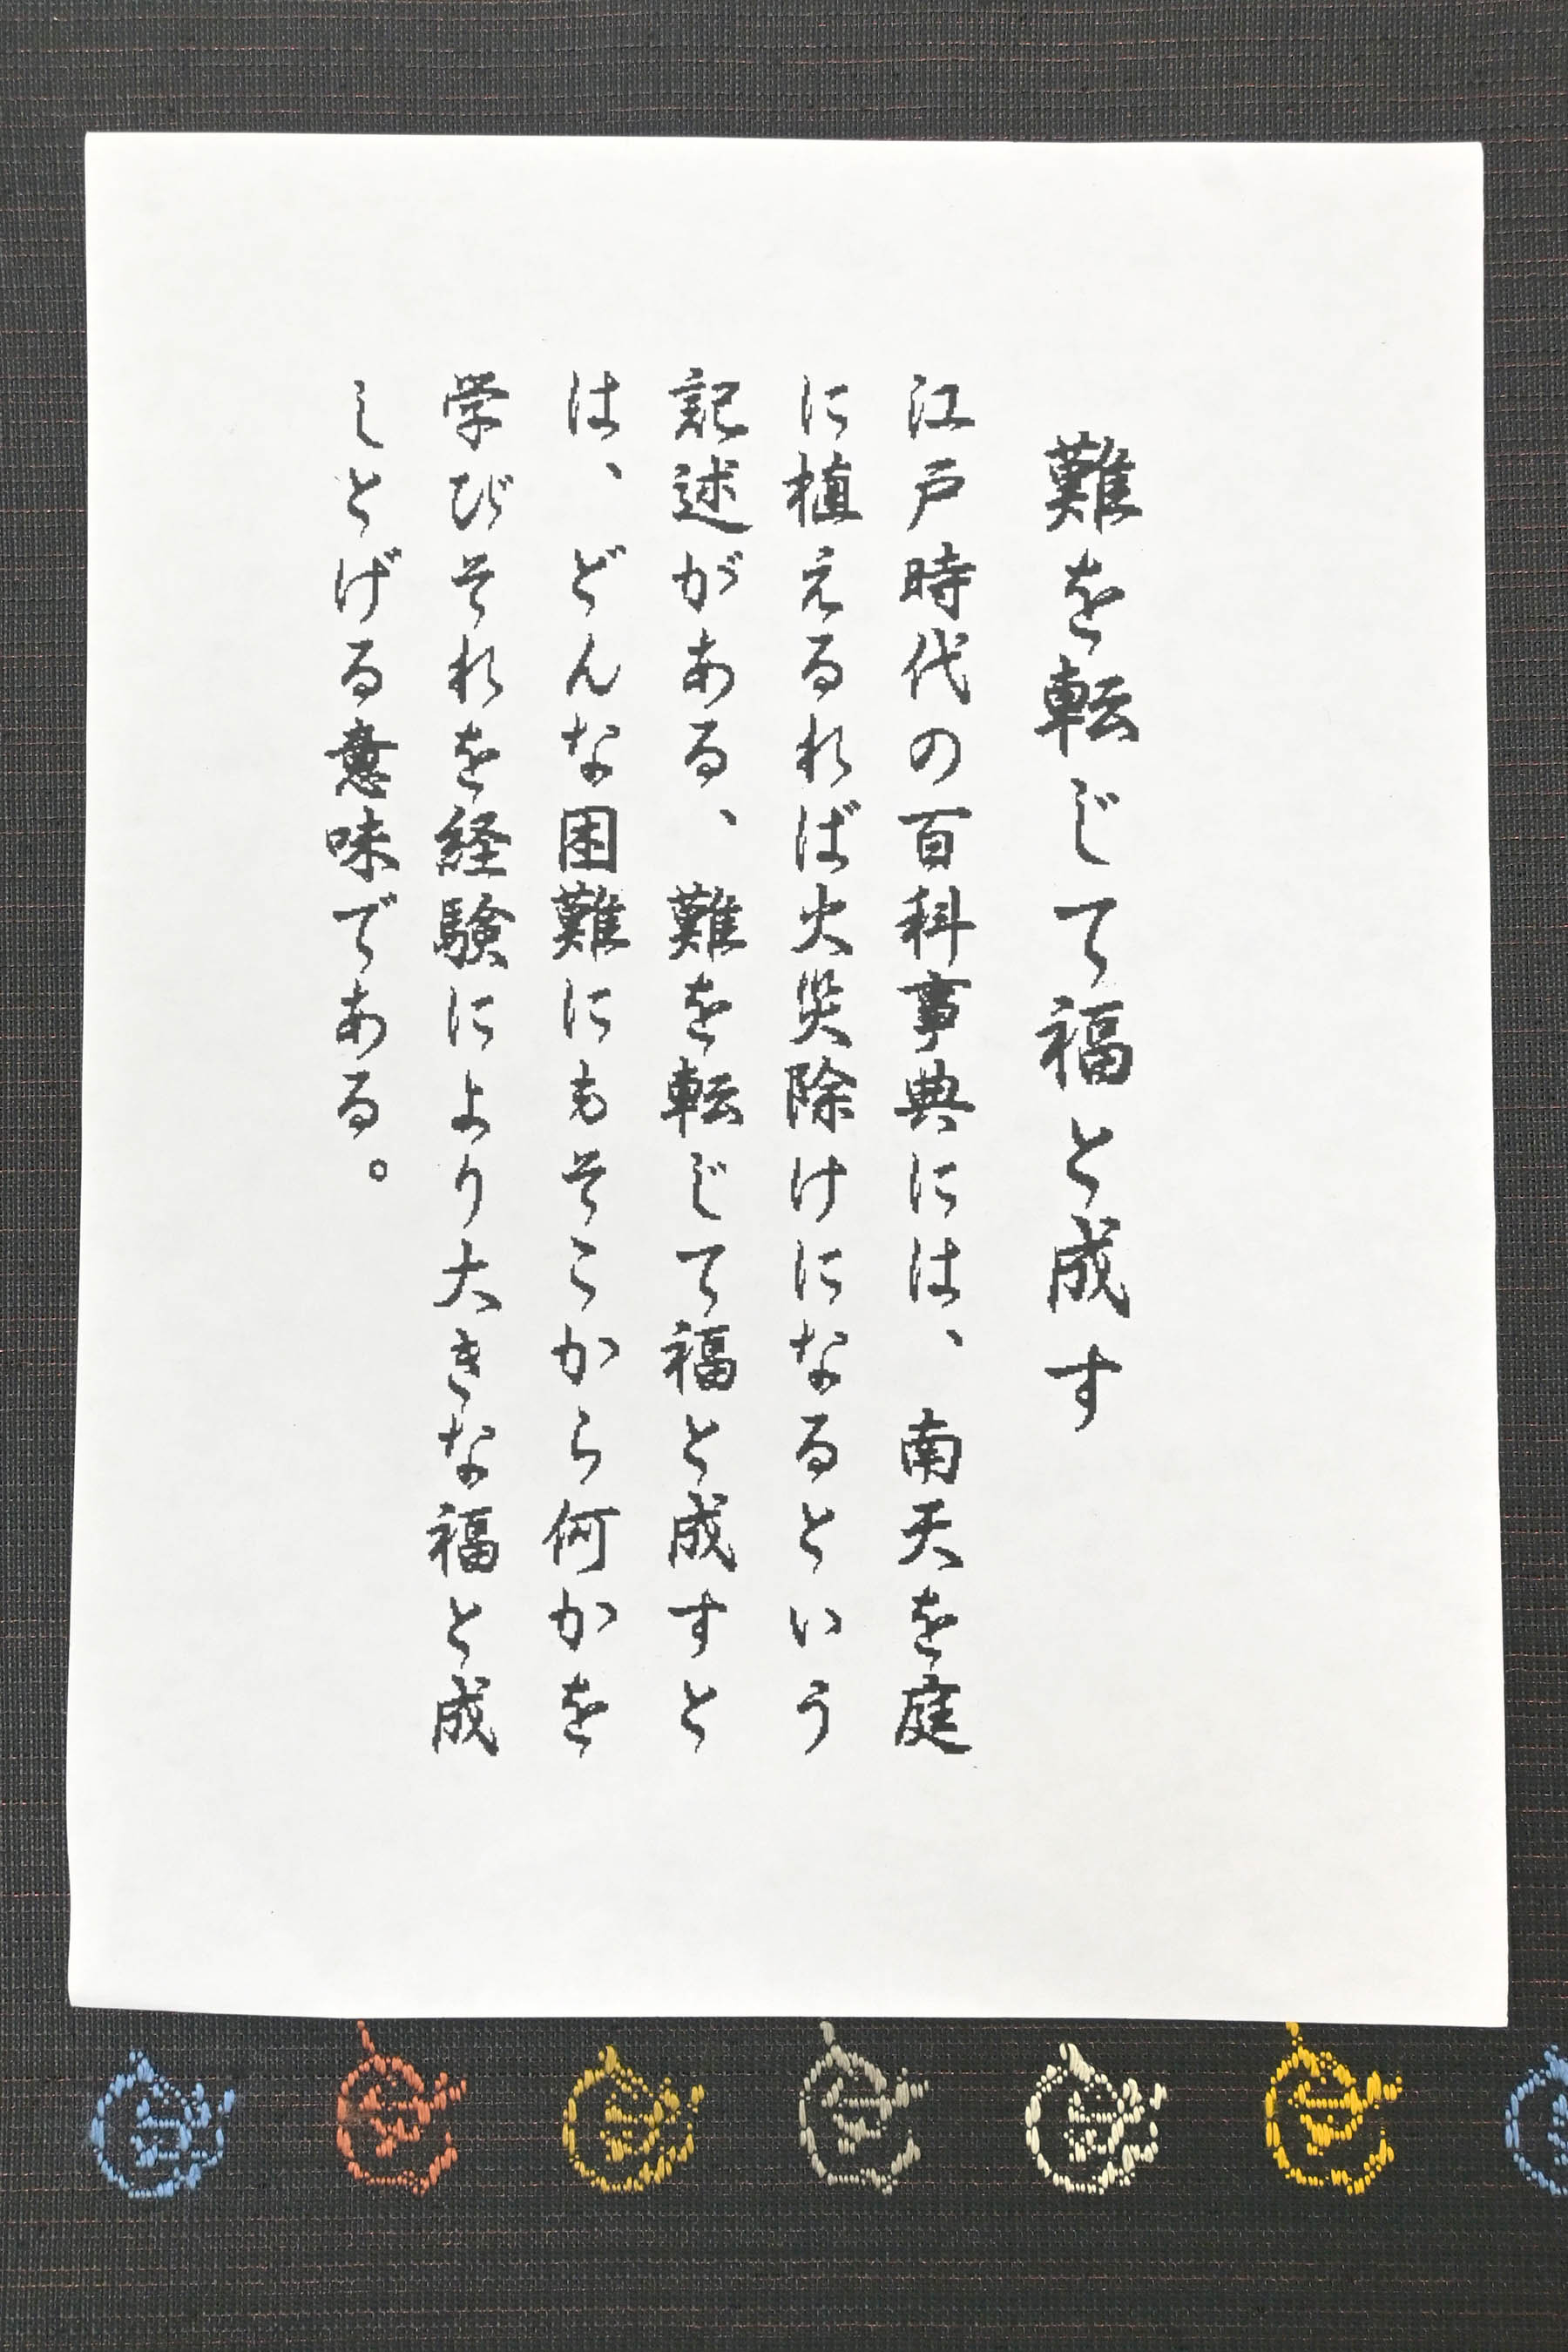 難を転じて福と成す
江戸時代の百科事典には、南天を庭
に植えるれば火災除けになるという
記述がある、難を転じて福と成すと
は、どんな困難にもそこから何かを
学びそれを経験により大きな福と成
しとげる意味である。